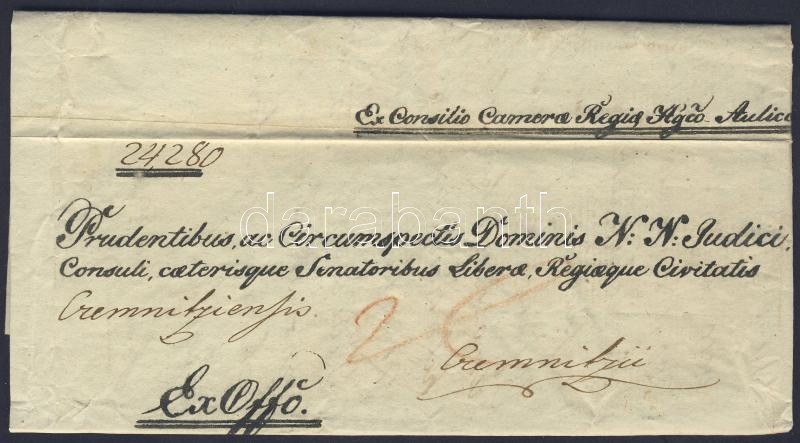 Ex Consilio Cameræ Regiæ Hgco Aulico
24,280
Prudentibus, ac Circumspectis Dominis N: N: Iudici,
Consuli, cæterisque Senatoribus Liberæ, Regiæque Civitatis
Cremnitziensis.
Cremnitzii
Ex Offo.
darabanth